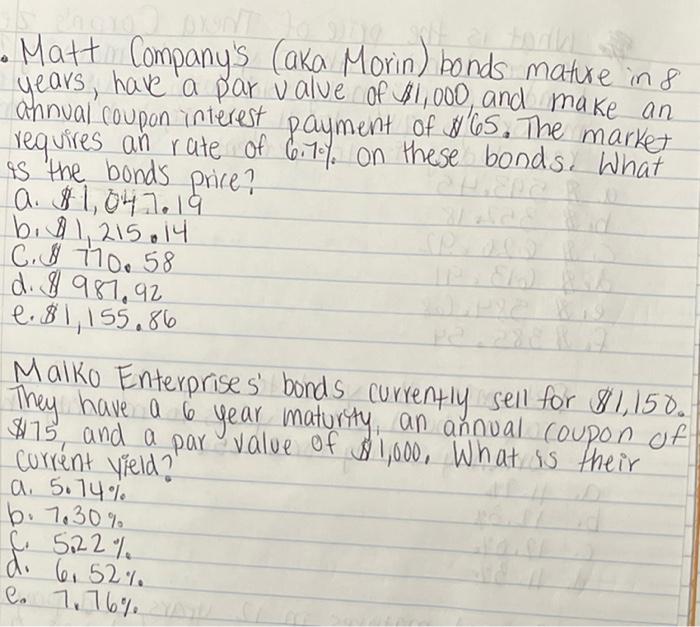 . Matt Company's (aka Morin) bonds mature in 8
years, have a par value of $1,000, and make an
annual coupon interest payment of $65. The market
requires an rate of 6.7% on these bonds. What
is the bonds price?
a. $1,047.19
b. $1,215.14
c. $ 770.58
d. $ 987.92
e. $1,155.86
Malko Enterprises' bonds currently sell for $1,150.
They have a 6 year maturity, an annual coupon of
$75, and a par value of $1,000. What is their
current yield?
a. 5.74%
b. 7.30%
c. 5.22%
d. 6.52%
e. 7.76%